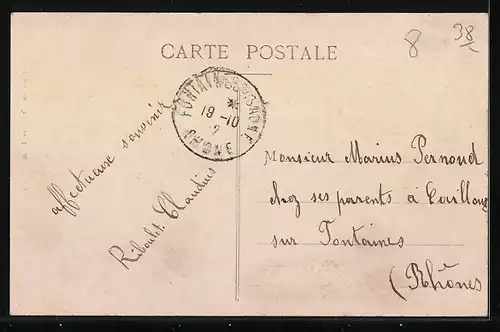 8
38
CARTE POSTALE
FONTAINES-S-SAONE
*
19 -10
RHONE
affectueux souvenir
Riboulet Claudius
Monsieur Marius Pernoud
chez ses parents à Cailloux
sur Fontaines
(Rhônes